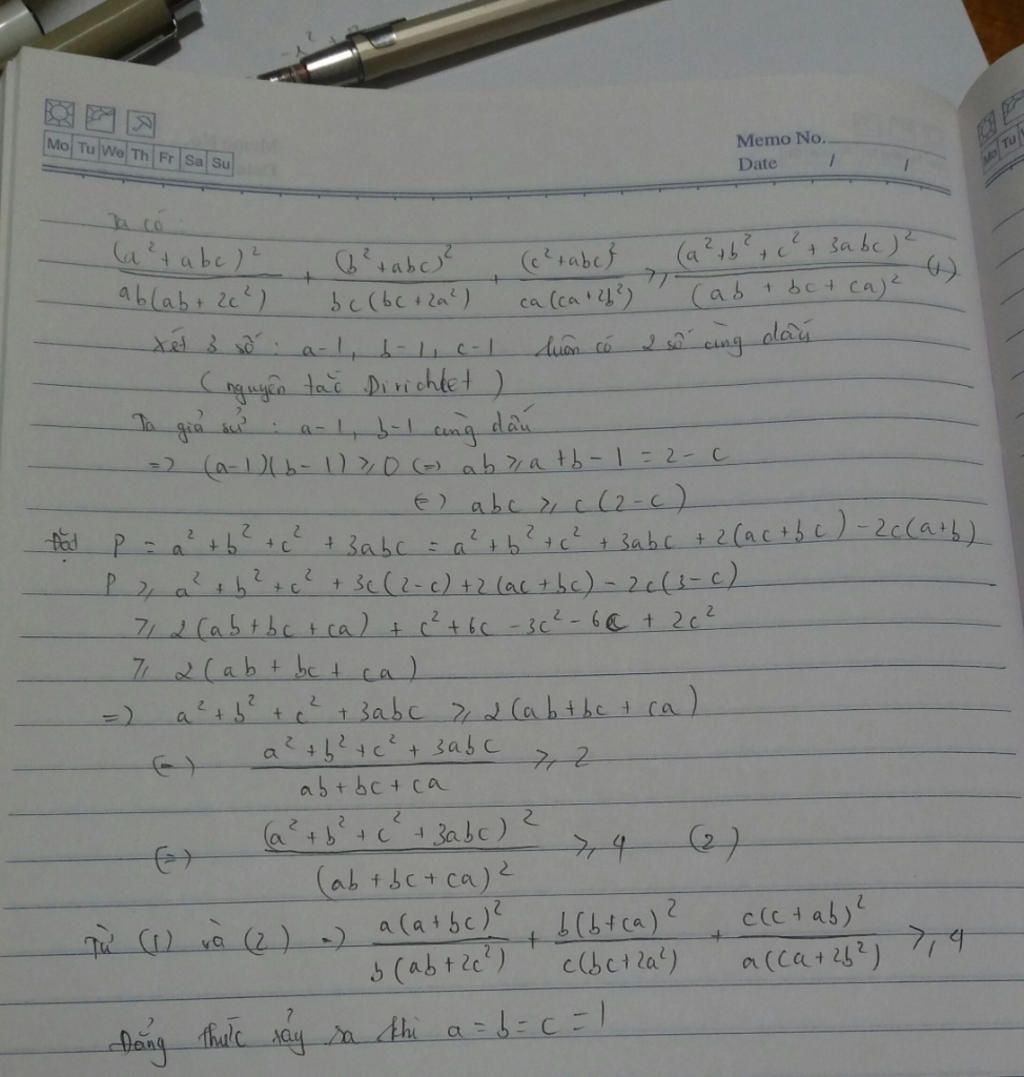 Mo Tu We Th Fr Sa Su
Memo No.
Date / /
Ta có
(a²+abc)²/ab(ab+2c²) + (b²+abc)²/bc(bc+2a²) + (c²+abc)²/ca(ca+2b²) ⩾ (a²+b²+c²+3abc)²/(ab+bc+ca)² (1)
Xét 3 số : a-1, b-1, c-1 luôn có 2 số cùng dấu
(nguyên tắc Dirichlet)
Ta giả sử : a-1, b-1 cùng dấu
=> (a-1)(b-1) ⩾ 0 (=) ab ⩾ a+b-1 = 2-c
(=) abc ⩾ c(2-c)
Đặt P = a²+b²+c²+3abc = a²+b²+c²+3abc+2(ac+bc)-2c(a+b)
P ⩾ a²+b²+c²+3c(2-c)+2(ac+bc)-2c(3-c)
⩾ 2(ab+bc+ca) + c²+6c-3c²-6c+2c²
⩾ 2(ab+bc+ca)
=> a²+b²+c²+3abc ⩾ 2(ab+bc+ca)
(=) a²+b²+c²+3abc/ab+bc+ca ⩾ 2
(=) (a²+b²+c²+3abc)²/(ab+bc+ca)² ⩾ 4 (2)
Từ (1) và (2) => a(a+bc)²/b(ab+2c²) + b(b+ca)²/c(bc+2a²) + c(c+ab)²/a(ca+2b²) ⩾ 4
Đẳng thức xảy ra khi a=b=c=1